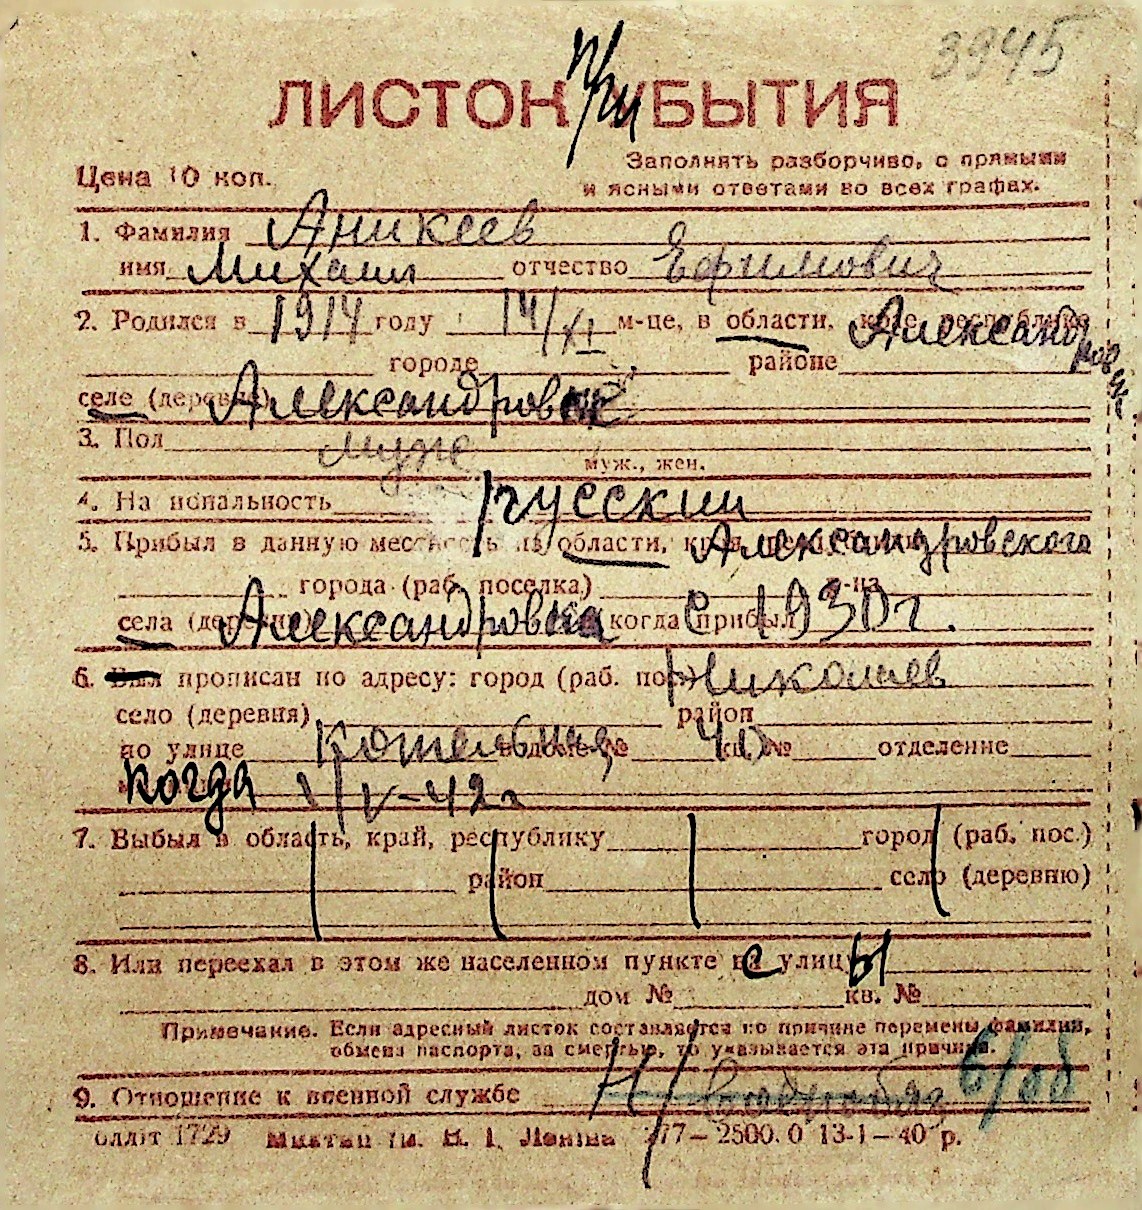 3945
ЛИСТОК УБЫТИЯ
при
Цена 10 коп.
Заполнять разборчиво, с прямыми
и ясными ответами во всех графах.
1. Фамилия Аникеев
имя Михаил отчество Ефимович
2. Родился в 1914 году 14/XI м-це, в области, крае, республике Александровск
городе районе
селе (деревне) Александровске
3. Пол муж
муж., жен.
4. Национальность русский
5. Прибыл в данную местность из области, края, республики Александровского
города (раб. поселка) р-на
села (деревни) Александровка когда прибыл с 1930 г.
6. Был прописан по адресу: город (раб. пос.) Николаев
село (деревня) район
по улице Котельная дом № 40 кв. № отделение
когда 1/V-42 г
7. Выбыл в область, край, республику город (раб. пос.)
район село (деревню)
8. Или переехал в этом же населенном пункте на с улицы
дом № кв. №
Примечание. Если адресный листок составляется по причине перемены фамилии,
обмена паспорта, за смертью, то указывается эта причина.
9. Отношение к военной службе Н/ 6/об
1729 В. І. Леніна 277—2500.0 13-1—40 р.